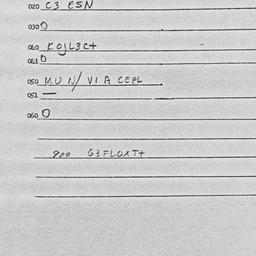 020 C3 ESN
030 0
040 EOJL3C+
041 0
050 MUN/ VIA CEPL
051 —
060 0
900 G3FLOAT+